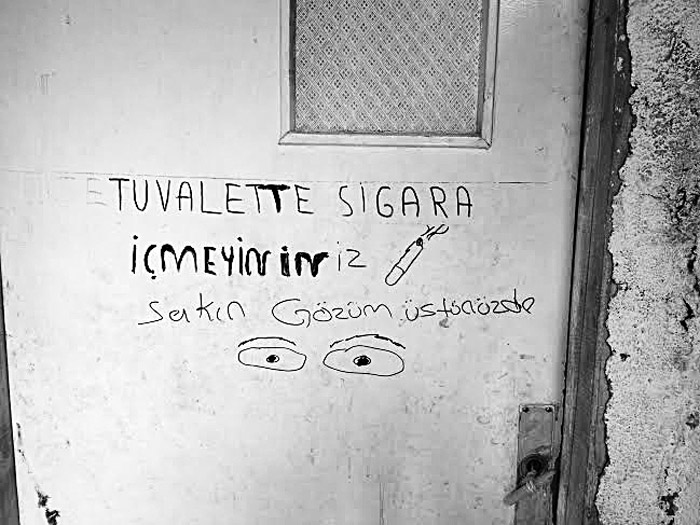 TUVALETTE SİGARA
İÇMEYİNİNİZ
Sakın Gözüm üstünüzde